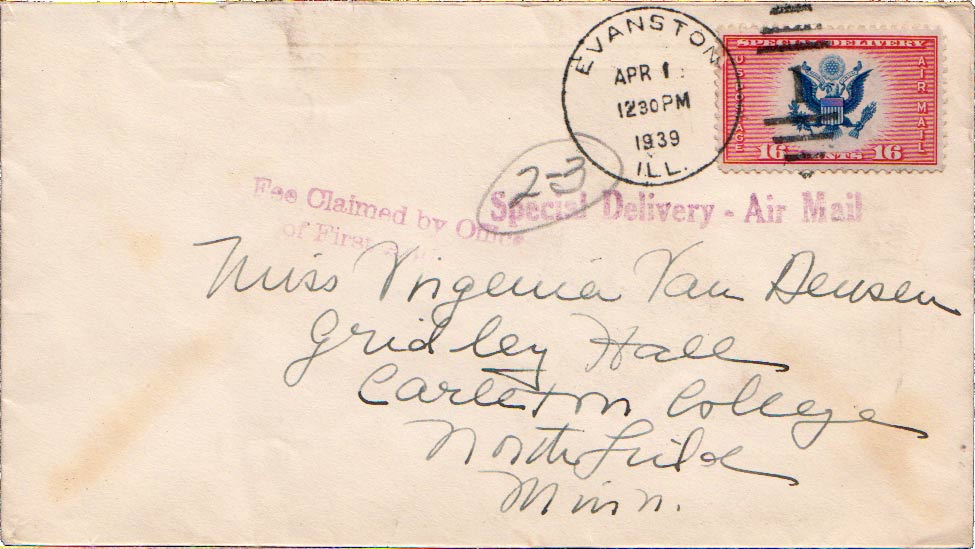 EVANSTON,
APR 1
1230 PM
1939
ILL.
SPECIAL DELIVERY
US POSTAGE
AIR MAIL
16 CENTS 16
2-3
Special Delivery - Air Mail
Fee Claimed by Office
of First
Miss Virginia Van Deusen
Gridley Hall
Carleton College
Northfield
Minn.